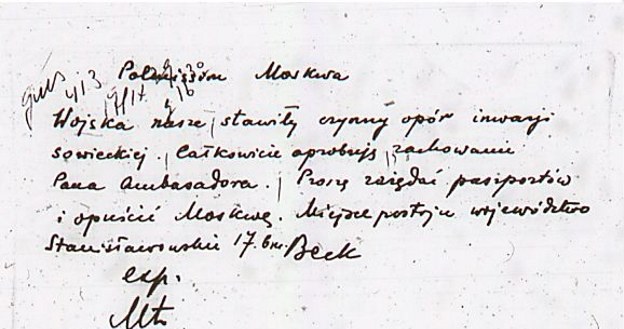 413
Polmission Moskwa
Wojska nasze stawiły czynny opór inwazji
sowieckiej. Całkowicie aprobuję zachowanie
Pana Ambasadora. Proszę zażądać paszportów
i opuścić Moskwę. Miejsce postoju województwo
Stanisławowskie 17. bm. Beck
exp.